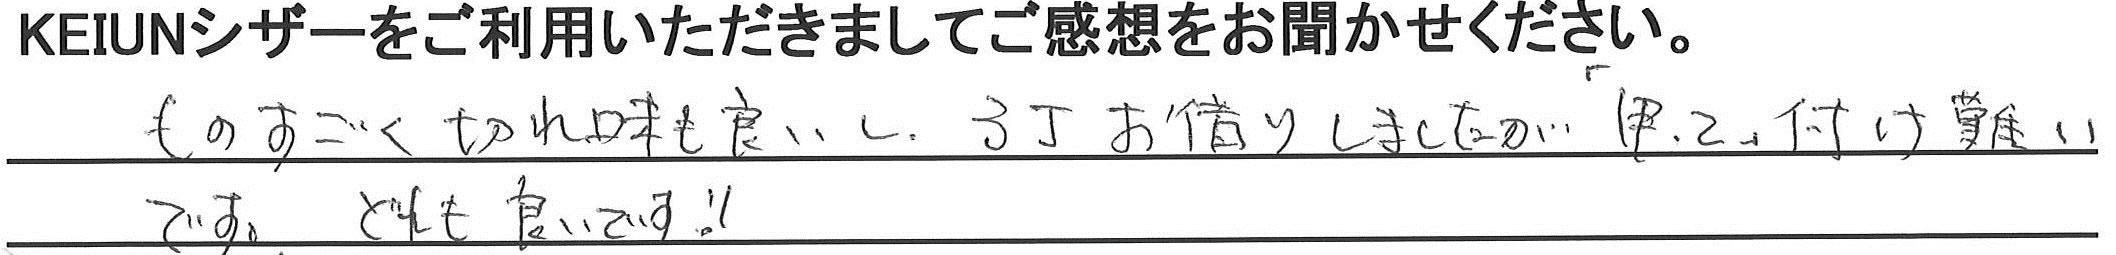 KEIUNシザーをご利用いただきましてご感想をお聞かせください。
ものすごく切れ味も良いし、3丁お借りしましたが「甲、乙」付け難い
です。どれも良いです!!